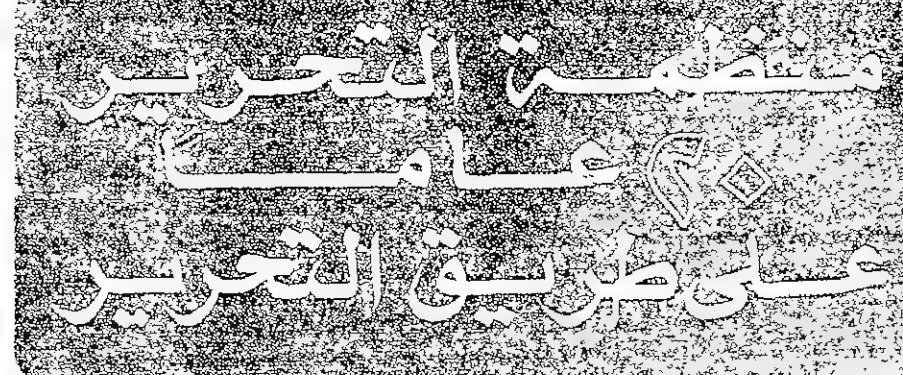 منظمة التحرير
٢٠ عامًا
على طريق التحرير